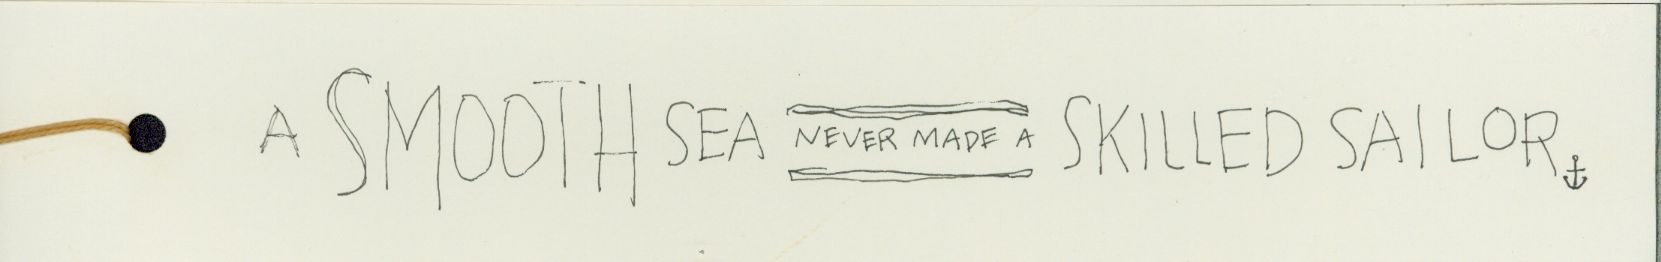 A SMOOTH SEA NEVER MADE A SKILLED SAILOR